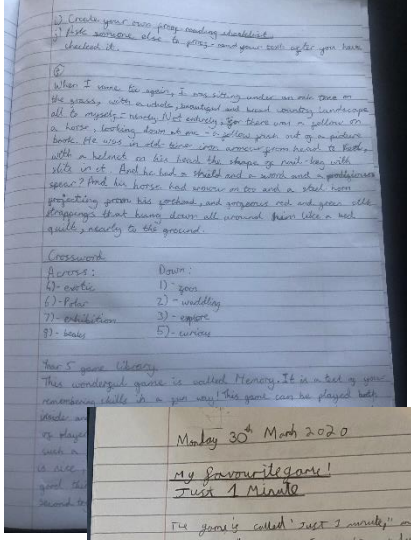 i) Create your own proof reading checklist
j) Ask someone else to proof-read your text after you have
checked it.
When I came to again, I was sitting under an oak tree on
the grass, with a whole, beautiful and broad country landscape
all to myself - nearly. Not entirely; for there was a fellow on
a horse, looking down at me - a fellow fresh out of a picture
book. He was in old-time iron armour from head to heel,
with a helmet on his head the shape of nail-keg with
slits in it. And he had a shield and a sword and a prodigious
spear? And his horse had armour on too and a steel horn
projecting from his forehead, and gorgeous red and green silk
trappings that hung down all around him like a bed
quilt, nearly to the ground.
Crossword
Across: Down:
4) - exotic 1) -
6) - Polar 2) - waddling
7) - exhibition 3) - explore
8) - beaks 5) - curious
Year 5 game library
This wonderful game is called Memory. It is a test of your
remembering skills in a fun way! This game can be played both
of player
such a
is
second
Monday 30th March 2020
My favourite game!
Just 1 Minute
The game is called "Just 1 minute,"